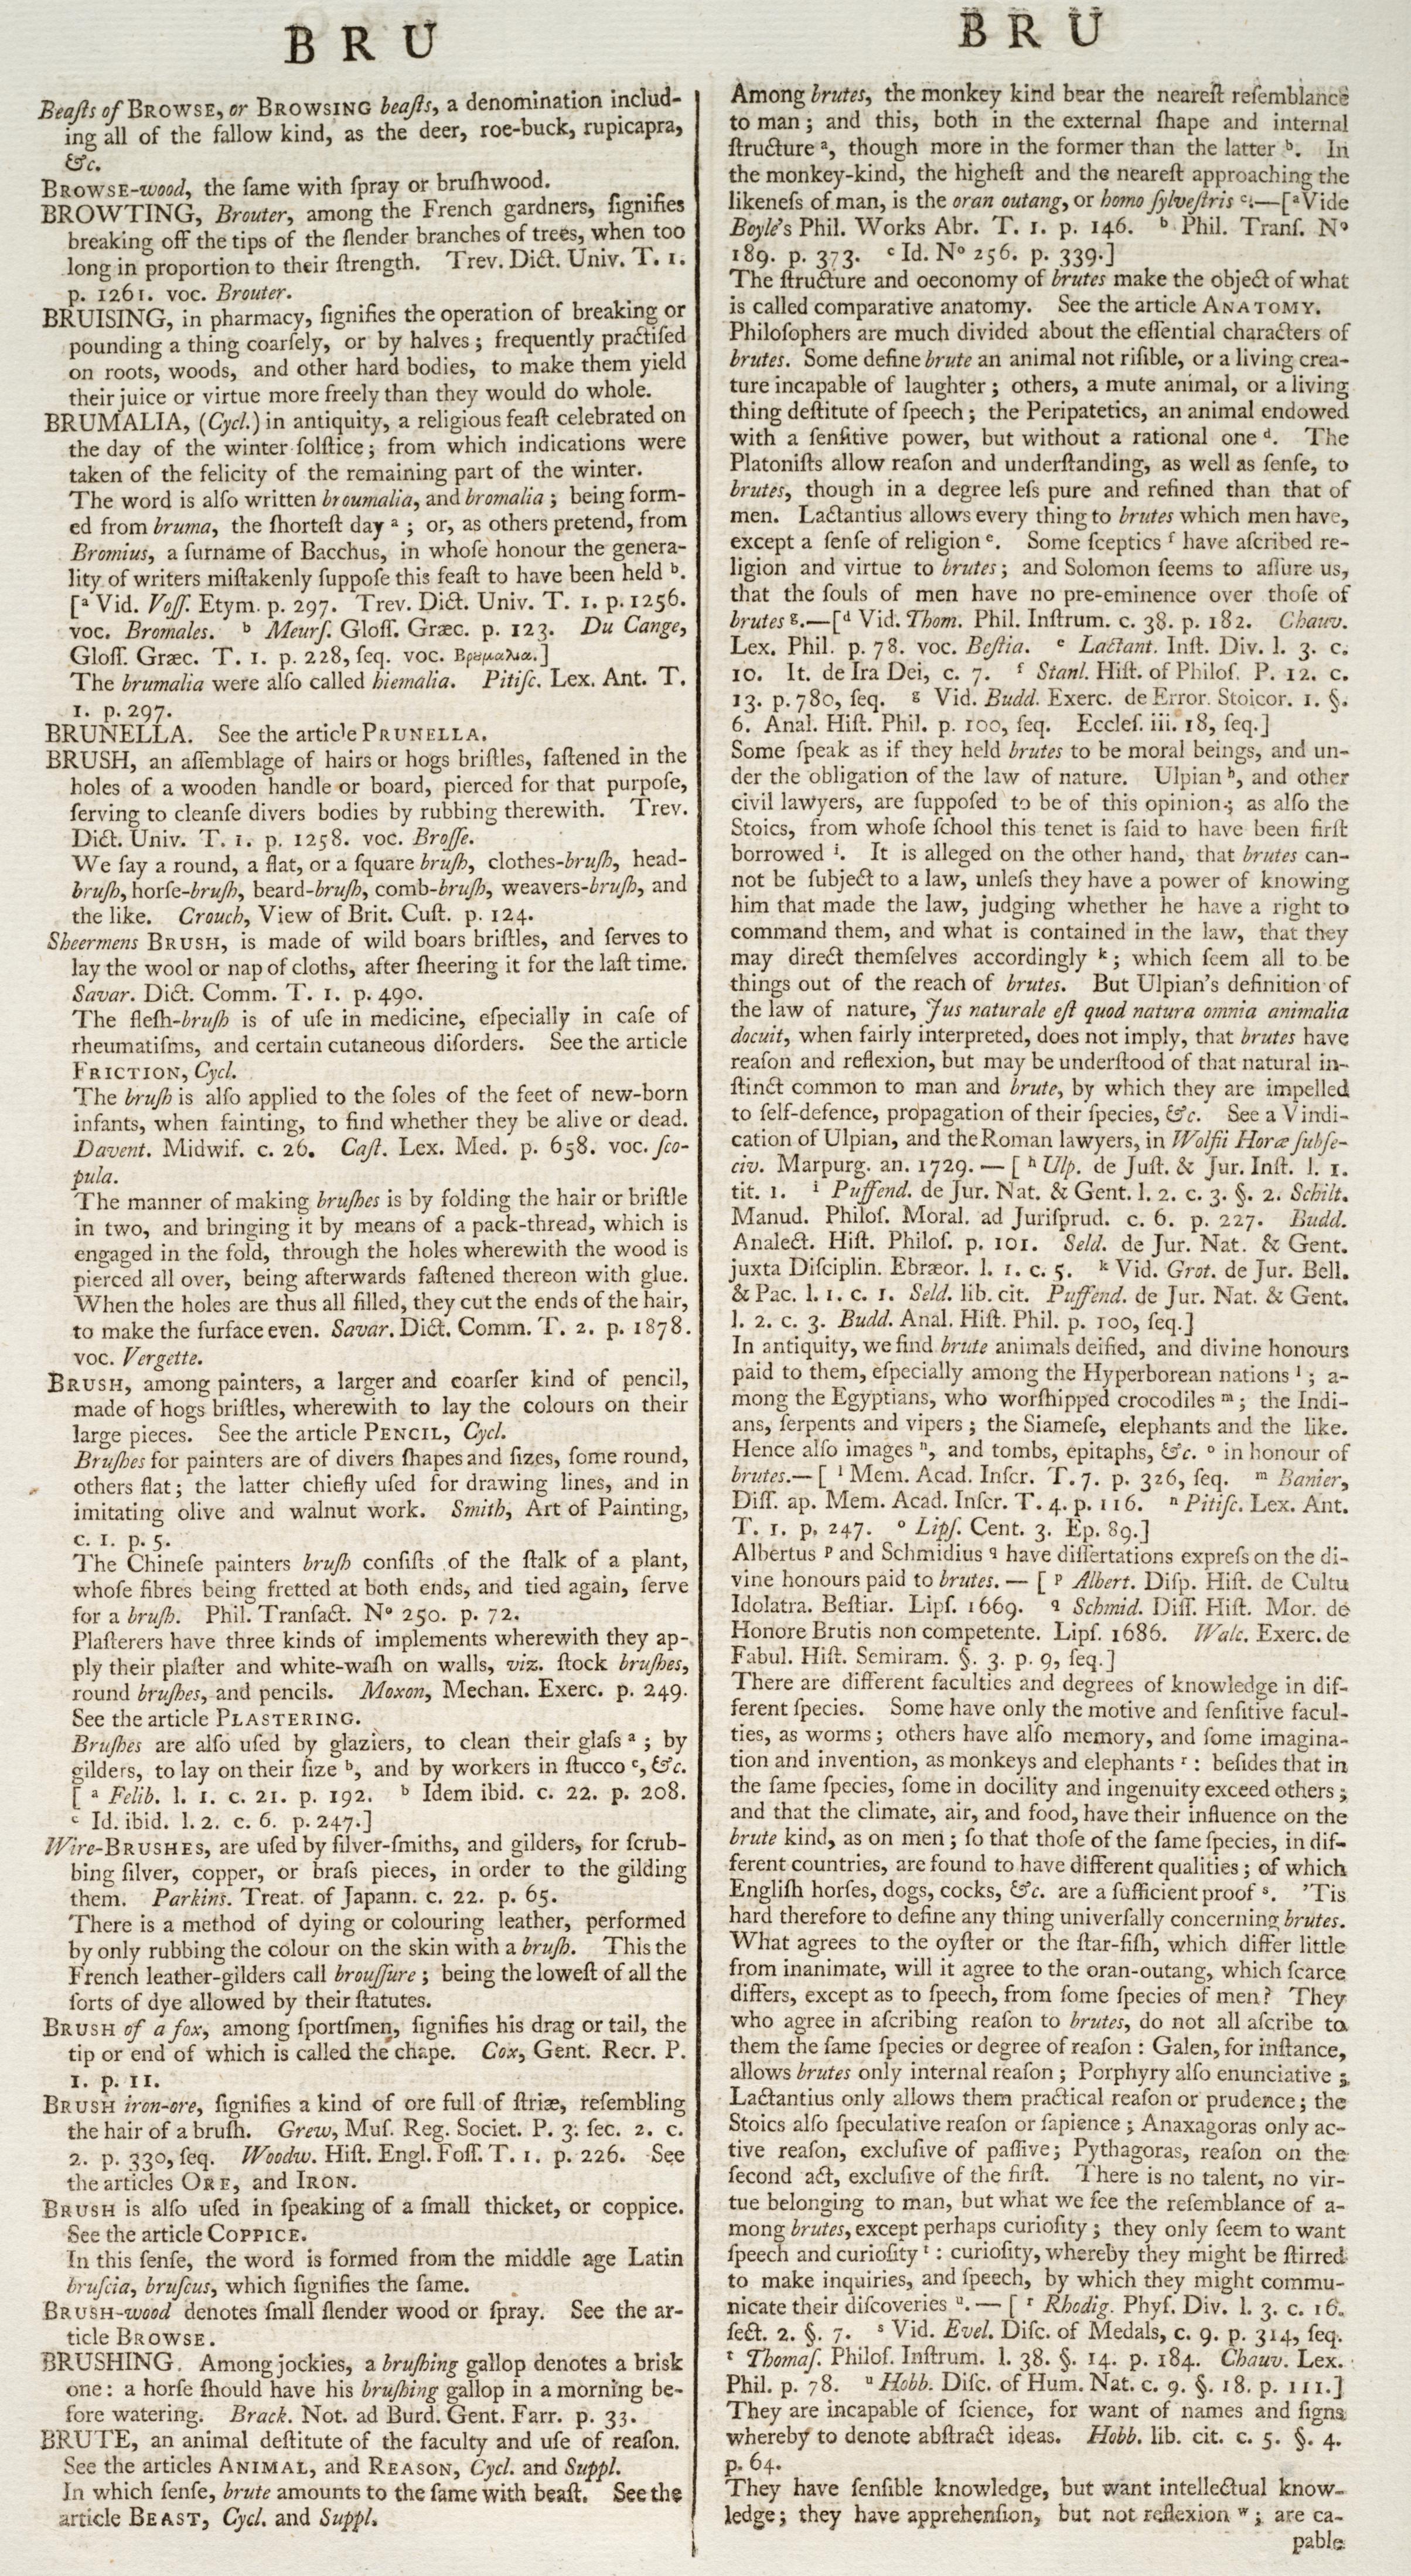 B R U
Beaſts of BROWSE, or BROWSING beaſts, a denomination includ-
ing all of the fallow kind, as the deer, roe-buck, rupicapra,
&c.
BROWSE-wood, the ſame with ſpray or bruſhwood.
BROWTING, Brouter, among the French gardners, ſignifies
breaking off the tips of the ſlender branches of trees, when too
long in proportion to their ſtrength. Trev. Dict. Univ. T. 1.
p. 1261. voc. Brouter.
BRUISING, in pharmacy, ſignifies the operation of breaking or
pounding a thing coarſely, or by halves; frequently practiſed
on roots, woods, and other hard bodies, to make them yield
their juice or virtue more freely than they would do whole.
BRUMALIA, (Cycl.) in antiquity, a religious feaſt celebrated on
the day of the winter ſolſtice; from which indications were
taken of the felicity of the remaining part of the winter.
The word is alſo written broumalia, and bromalia; being form-
ed from bruma, the ſhorteſt day ᵃ; or, as others pretend, from
Bromius, a ſurname of Bacchus, in whoſe honour the genera-
lity of writers miſtakenly ſuppoſe this feaſt to have been held ᵇ.
[ᵃ Vid. Voſſ. Etym. p. 297. Trev. Dict. Univ. T. 1. p. 1256.
voc. Bromales. ᵇ Meurſ. Gloſſ. Græc. p. 123. Du Cange,
Gloſſ. Græc. T. 1. p. 228, ſeq. voc. Βρȣμαλια.]
The brumalia were alſo called hiemalia. Pitiſc. Lex. Ant. T.
1. p. 297.
BRUNELLA. See the article PRUNELLA.
BRUSH, an aſſemblage of hairs or hogs briſtles, faſtened in the
holes of a wooden handle or board, pierced for that purpoſe,
ſerving to cleanſe divers bodies by rubbing therewith. Trev.
Dict. Univ. T. 1. p. 1258. voc. Broſſe.
We ſay a round, a flat, or a ſquare bruſh, clothes-bruſh, head-
bruſh, horſe-bruſh, beard-bruſh, comb-bruſh, weavers-bruſh, and
the like. Crouch, View of Brit. Cuſt. p. 124.
Sheermens BRUSH, is made of wild boars briſtles, and ſerves to
lay the wool or nap of cloths, after ſheering it for the laſt time.
Savar. Dict. Comm. T. 1. p. 490.
The fleſh-bruſh is of uſe in medicine, eſpecially in caſe of
rheumatiſms, and certain cutaneous diſorders. See the article
FRICTION, Cycl.
The bruſh is alſo applied to the ſoles of the feet of new-born
infants, when fainting, to find whether they be alive or dead.
Davent. Midwif. c. 26. Caſt. Lex. Med. p. 658. voc. ſco-
pula.
The manner of making bruſhes is by folding the hair or briſtle
in two, and bringing it by means of a pack-thread, which is
engaged in the fold, through the holes wherewith the wood is
pierced all over, being afterwards faſtened thereon with glue.
When the holes are thus all filled, they cut the ends of the hair,
to make the ſurface even. Savar. Dict. Comm. T. 2. p. 1878.
voc. Vergette.
BRUSH, among painters, a larger and coarſer kind of pencil,
made of hogs briſtles, wherewith to lay the colours on their
large pieces. See the article PENCIL, Cycl.
Bruſhes for painters are of divers ſhapes and ſizes, ſome round,
others flat; the latter chiefly uſed for drawing lines, and in
imitating olive and walnut work. Smith, Art of Painting,
c. 1. p. 5.
The Chineſe painters bruſh conſiſts of the ſtalk of a plant,
whoſe fibres being fretted at both ends, and tied again, ſerve
for a bruſh. Phil. Tranſact. Nᵒ 250. p. 72.
Plaſterers have three kinds of implements wherewith they ap-
ply their plaſter and white-waſh on walls, viz. ſtock bruſhes,
round bruſhes, and pencils. Moxon, Mechan. Exerc. p. 249.
See the article PLASTERING.
Bruſhes are alſo uſed by glaziers, to clean their glaſs ᵃ; by
gilders, to lay on their ſize ᵇ, and by workers in ſtucco ᶜ, &c.
[ ᵃ Felib. l. 1. c. 21. p. 192. ᵇ Idem ibid. c. 22. p. 208.
ᶜ Id. ibid. l. 2. c. 6. p. 247.]
Wire-BRUSHES, are uſed by ſilver-ſmiths, and gilders, for ſcrub-
bing ſilver, copper, or braſs pieces, in order to the gilding
them. Parkins. Treat. of Japann. c. 22. p. 65.
There is a method of dying or colouring leather, performed
by only rubbing the colour on the skin with a bruſh. This the
French leather-gilders call brouſſure; being the loweſt of all the
ſorts of dye allowed by their ſtatutes.
BRUSH of a fox, among ſportſmen, ſignifies his drag or tail, the
tip or end of which is called the chape. Cox, Gent. Recr. P.
1. p. 11.
BRUSH iron-ore, ſignifies a kind of ore full of ſtriæ, reſembling
the hair of a bruſh. Grew, Muſ. Reg. Societ. P. 3. ſec. 2. c.
2. p. 330, ſeq. Woodw. Hiſt. Engl. Foſſ. T. 1. p. 226. See
the articles ORE, and IRON.
BRUSH is alſo uſed in ſpeaking of a ſmall thicket, or coppice.
See the article COPPICE.
In this ſenſe, the word is formed from the middle age Latin
bruſcia, bruſcus, which ſignifies the ſame.
BRUSH-wood denotes ſmall ſlender wood or ſpray. See the ar-
ticle BROWSE.
BRUSHING. Among jockies, a bruſhing gallop denotes a brisk
one: a horſe ſhould have his bruſhing gallop in a morning be-
fore watering. Brack. Not. ad Burd. Gent. Farr. p. 33.
BRUTE, an animal deſtitute of the faculty and uſe of reaſon.
See the articles ANIMAL, and REASON, Cycl. and Suppl.
In which ſenſe, brute amounts to the ſame with beaſt. See the
article BEAST, Cycl. and Suppl.
B R U
Among brutes, the monkey kind bear the neareſt reſemblance
to man; and this, both in the external ſhape and internal
ſtructure ᵃ, though more in the former than the latter ᵇ. In
the monkey-kind, the higheſt and the neareſt approaching the
likeneſs of man, is the oran outang, or homo ſylveſtris ᶜ.—[ᵃ Vide
Boyle's Phil. Works Abr. T. 1. p. 146. ᵇ Phil. Tranſ. Nᵒ
189. p. 373. ᶜ Id. Nᵒ 256. p. 339.]
The ſtructure and oeconomy of brutes make the object of what
is called comparative anatomy. See the article ANATOMY.
Philoſophers are much divided about the eſſential characters of
brutes. Some define brute an animal not riſible, or a living crea-
ture incapable of laughter; others, a mute animal, or a living
thing deſtitute of ſpeech; the Peripatetics, an animal endowed
with a ſenſitive power, but without a rational one ᵈ. The
Platoniſts allow reaſon and underſtanding, as well as ſenſe, to
brutes, though in a degree leſs pure and refined than that of
men. Lactantius allows every thing to brutes which men have,
except a ſenſe of religion ᵉ. Some ſceptics ᶠ have aſcribed re-
ligion and virtue to brutes; and Solomon ſeems to aſſure us,
that the ſouls of men have no pre-eminence over thoſe of
brutes ᵍ.—[ᵈ Vid. Thom. Phil. Inſtrum. c. 38. p. 182. Chauv.
Lex. Phil. p. 78. voc. Beſtia. ᵉ Lactant. Inſt. Div. l. 3. c.
10. It. de Ira Dei, c. 7. ᶠ Stanl. Hiſt. of Philoſ. P. 12. c.
13. p. 780, ſeq. ᵍ Vid. Budd. Exerc. de Error. Stoicor. 1. §.
6. Anal. Hiſt. Phil. p. 100, ſeq. Eccleſ. iii. 18, ſeq.]
Some ſpeak as if they held brutes to be moral beings, and un-
der the obligation of the law of nature. Ulpian ʰ, and other
civil lawyers, are ſuppoſed to be of this opinion; as alſo the
Stoics, from whoſe ſchool this tenet is ſaid to have been firſt
borrowed ⁱ. It is alleged on the other hand, that brutes can-
not be ſubject to a law, unleſs they have a power of knowing
him that made the law, judging whether he have a right to
command them, and what is contained in the law, that they
may direct themſelves accordingly ᵏ; which ſeem all to be
things out of the reach of brutes. But Ulpian's definition of
the law of nature, Jus naturale eſt quod natura omnia animalia
docuit, when fairly interpreted, does not imply, that brutes have
reaſon and reflexion, but may be underſtood of that natural in-
ſtinct common to man and brute, by which they are impelled
to ſelf-defence, propagation of their ſpecies, &c. See a Vindi-
cation of Ulpian, and the Roman lawyers, in Wolfii Horæ ſubſe-
civ. Marpurg. an. 1729. — [ ʰ Ulp. de Juſt. & Jur. Inſt. l. 1.
tit. 1. ⁱ Puffend. de Jur. Nat. & Gent. l. 2. c. 3. §. 2. Schilt.
Manud. Philoſ. Moral. ad Juriſprud. c. 6. p. 227. Budd.
Analect. Hiſt. Philoſ. p. 101. Seld. de Jur. Nat. & Gent.
juxta Diſciplin. Ebræor. l. 1. c. 5. ᵏ Vid. Grot. de Jur. Bell.
& Pac. l. 1. c. 1. Seld. lib. cit. Puffend. de Jur. Nat. & Gent.
l. 2. c. 3. Budd. Anal. Hiſt. Phil. p. 100, ſeq.]
In antiquity, we find brute animals deified, and divine honours
paid to them, eſpecially among the Hyperborean nations ˡ; a-
mong the Egyptians, who worſhipped crocodiles ᵐ; the Indi-
ans, ſerpents and vipers; the Siameſe, elephants and the like.
Hence alſo images ⁿ, and tombs, epitaphs, &c. ᵒ in honour of
brutes.— [ ˡ Mem. Acad. Inſcr. T. 7. p. 326, ſeq. ᵐ Banier,
Diſſ. ap. Mem. Acad. Inſcr. T. 4. p. 116. ⁿ Pitiſc. Lex. Ant.
T. 1. p. 247. ᵒ Lipſ. Cent. 3. Ep. 89.]
Albertus ᵖ and Schmidius q have diſſertations expreſs on the di-
vine honours paid to brutes. — [ ᵖ Albert. Diſp. Hiſt. de Cultu
Idolatra. Beſtiar. Lipſ. 1669. q Schmid. Diſſ. Hiſt. Mor. de
Honore Brutis non competente. Lipſ. 1686. Walc. Exerc. de
Fabul. Hiſt. Semiram. §. 3. p. 9, ſeq.]
There are different faculties and degrees of knowledge in dif-
ferent ſpecies. Some have only the motive and ſenſitive facul-
ties, as worms; others have alſo memory, and ſome imagina-
tion and invention, as monkeys and elephants ʳ: beſides that in
the ſame ſpecies, ſome in docility and ingenuity exceed others;
and that the climate, air, and food, have their influence on the
brute kind, as on men; ſo that thoſe of the ſame ſpecies, in dif-
ferent countries, are found to have different qualities; of which
Engliſh horſes, dogs, cocks, &c. are a ſufficient proof ˢ. 'Tis
hard therefore to define any thing univerſally concerning brutes.
What agrees to the oyſter or the ſtar-fiſh, which differ little
from inanimate, will it agree to the oran-outang, which ſcarce
differs, except as to ſpeech, from ſome ſpecies of men? They
who agree in aſcribing reaſon to brutes, do not all aſcribe to
them the ſame ſpecies or degree of reaſon: Galen, for inſtance,
allows brutes only internal reaſon; Porphyry alſo enunciative;
Lactantius only allows them practical reaſon or prudence; the
Stoics alſo ſpeculative reaſon or ſapience; Anaxagoras only ac-
tive reaſon, excluſive of paſſive; Pythagoras, reaſon on the
ſecond act, excluſive of the firſt. There is no talent, no vir-
tue belonging to man, but what we ſee the reſemblance of a-
mong brutes, except perhaps curioſity; they only ſeem to want
ſpeech and curioſity ᵗ: curioſity, whereby they might be ſtirred
to make inquiries, and ſpeech, by which they might commu-
nicate their diſcoveries ᵘ. — [ ʳ Rhodig. Phyſ. Div. l. 3. c. 16.
ſect. 2. §. 7. ˢ Vid. Evel. Diſc. of Medals, c. 9. p. 314, ſeq.
ᵗ Thomaſ. Philoſ. Inſtrum. l. 38. §. 14. p. 184. Chauv. Lex.
Phil. p. 78. ᵘ Hobb. Diſc. of Hum. Nat. c. 9. §. 18. p. 111.]
They are incapable of ſcience, for want of names and ſigns
whereby to denote abſtract ideas. Hobb. lib. cit. c. 5. §. 4.
p. 64.
They have ſenſible knowledge, but want intellectual know-
ledge; they have apprehenſion, but not reflexion ʷ; are ca-
pable